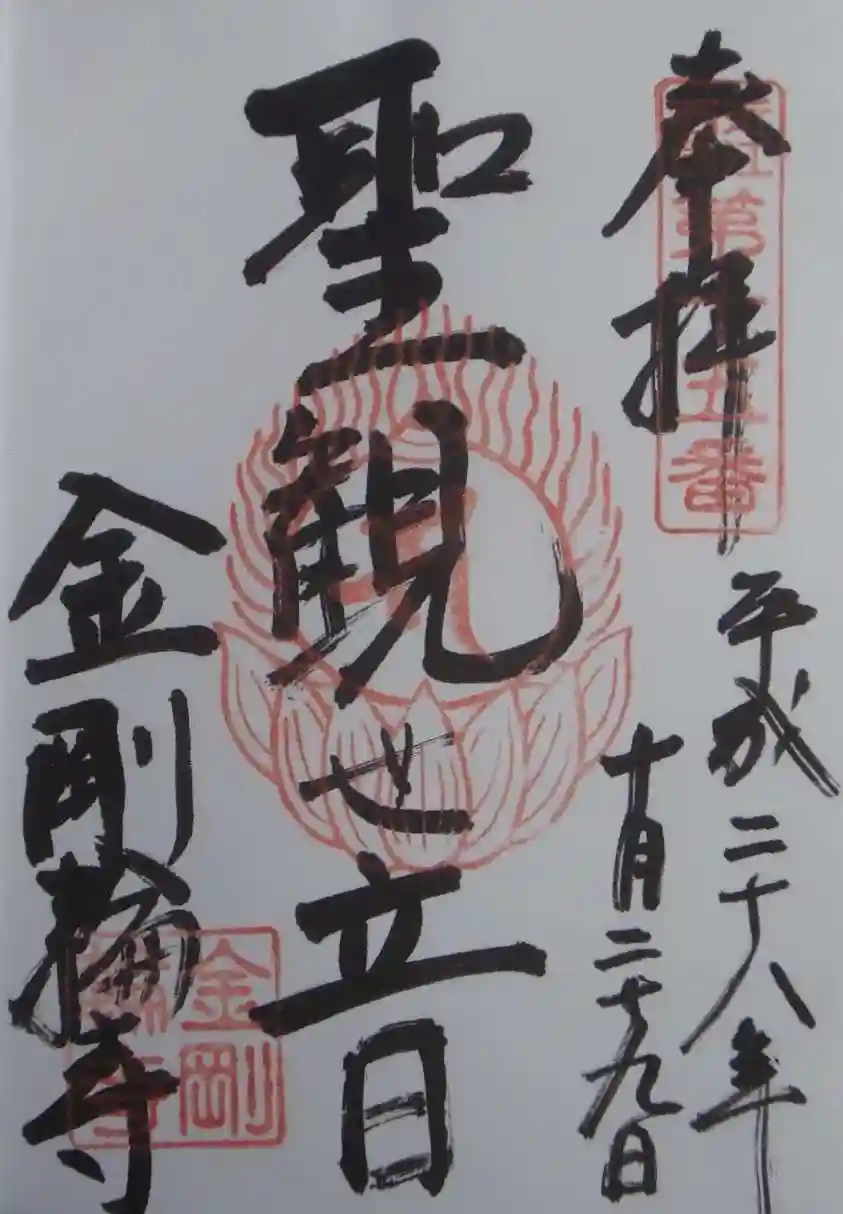 奉拝
平成二十八年
十月二十九日
聖観世音
金剛輪寺
第十五番
金剛輪寺